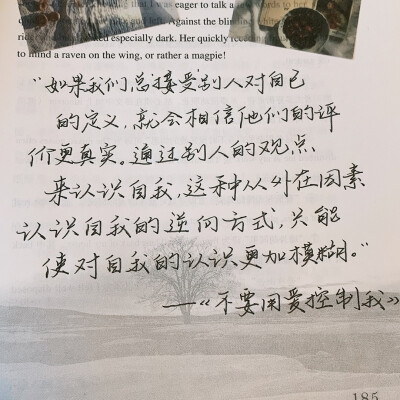 eager to talk a
Against the
especially dark. Her quickly
to mind a raven on the wing, or rather a magpie!
“如果我们总接受别人对自己
的定义,就会相信他们的评
价更真实。通过别人的观点
来认识自我,这种从外在因素
认识自我的逆向方式,只能
使对自我的认识更加模糊。”
——《不要用爱控制我》
185